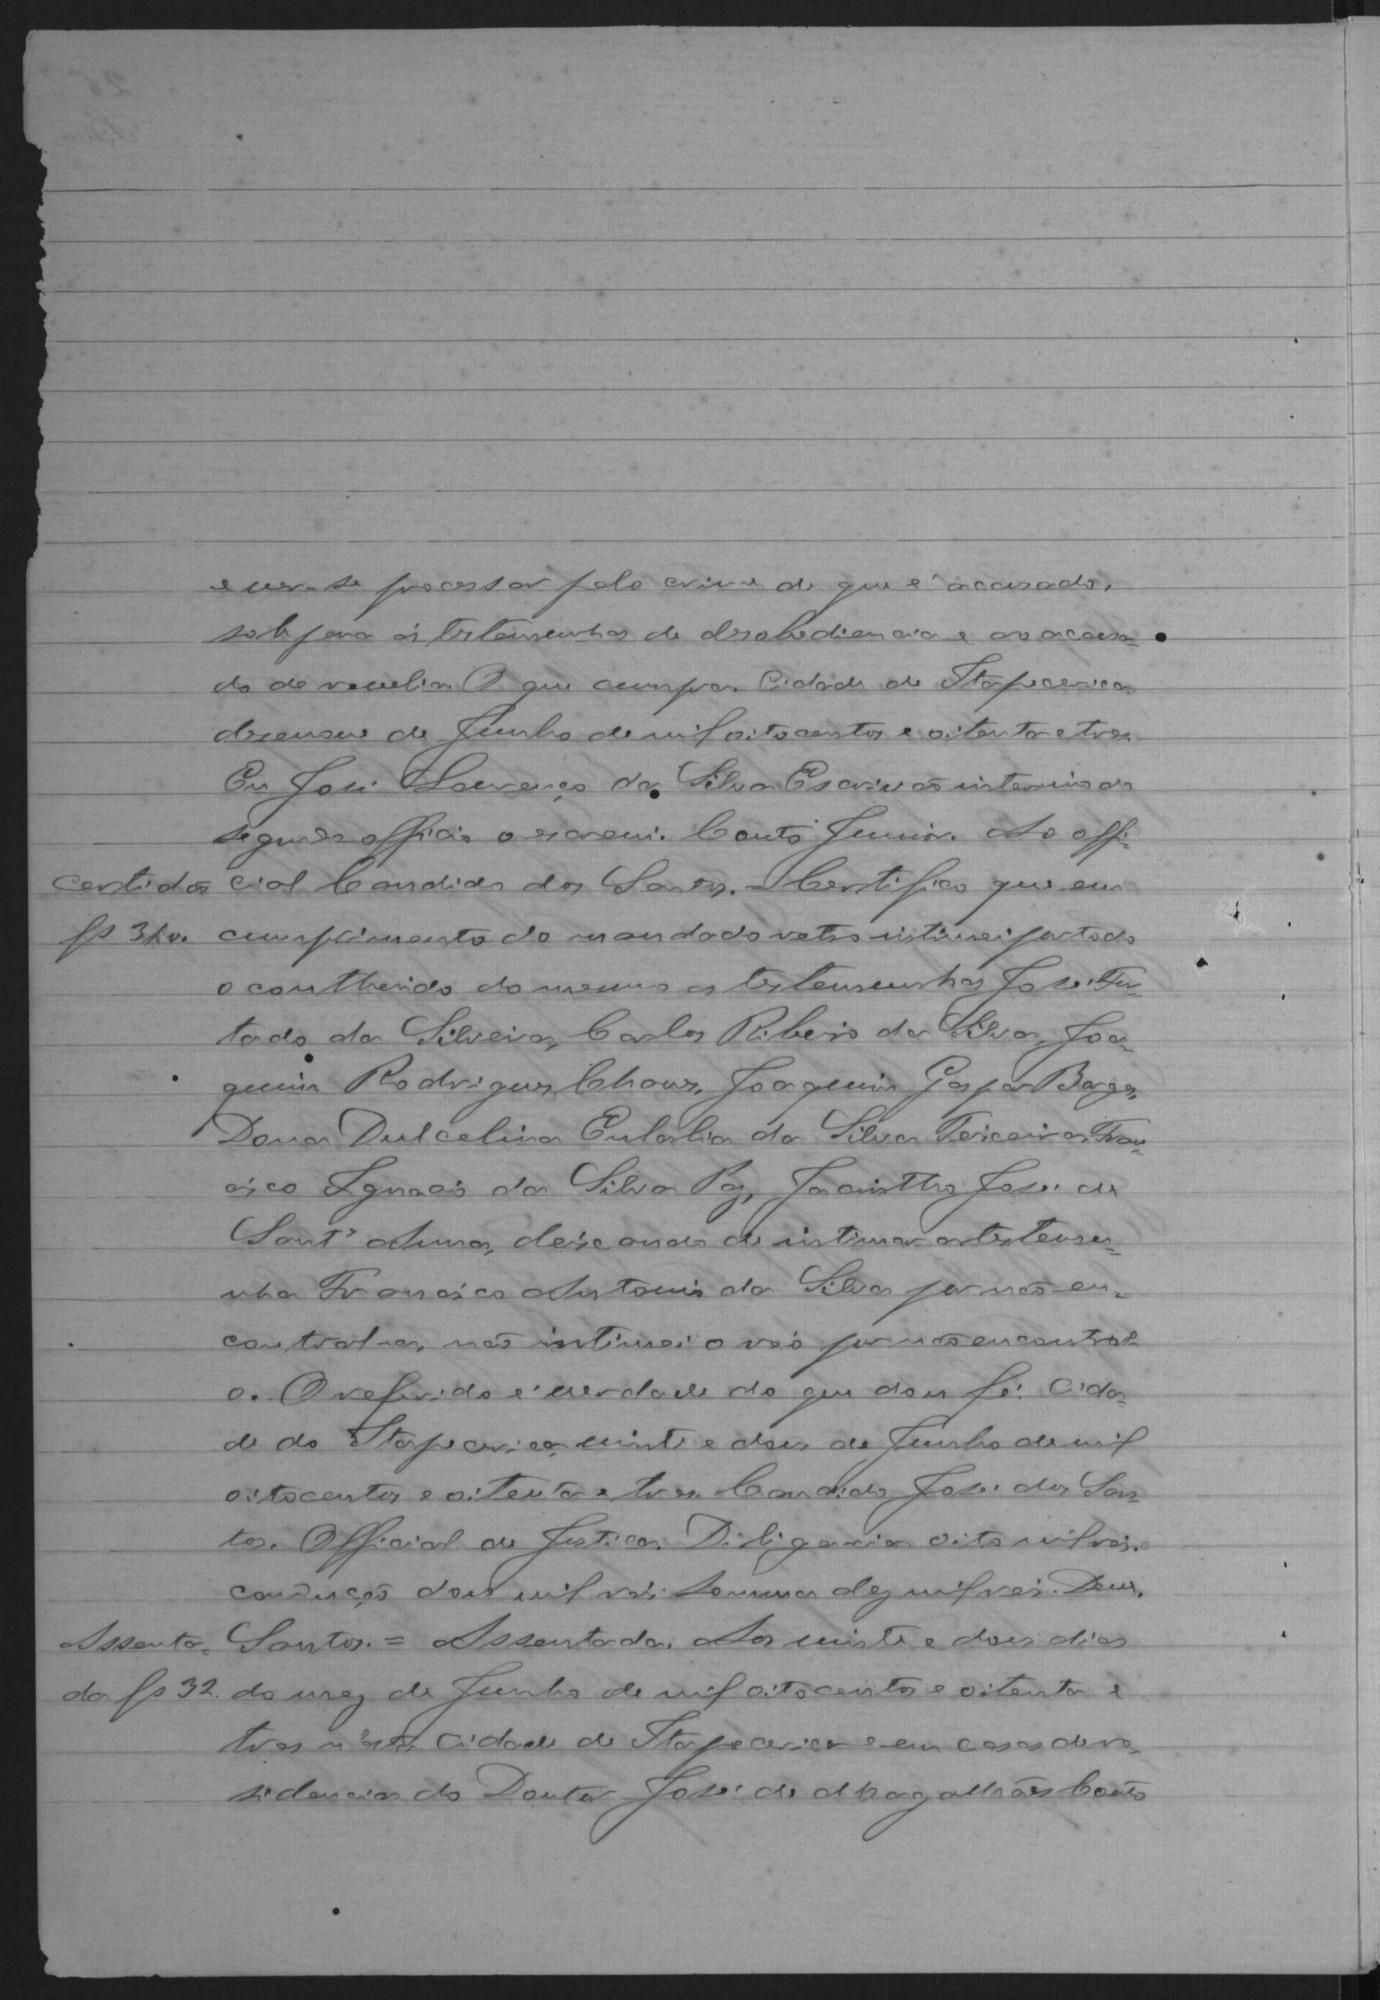 e ver-se processar pelo crime de que é accusado,
sob pena ás testemunhas de desobediencia e ao accusa-
do de revelia. O que cumpra. Cidade de Itapecerica
desenove de Junho de mil oitocentos e oitenta e tres.
Eu José Lourenço da Silva Escrivão interino do
segundo officio o escrevi. Couto Junior. Ao offi-
certidão cial Candido dos Santos. = Certifico que em
fs 31v. cumprimento do mandado retro intimei por todo
o conthendo do mesmo as testemunhas José Fur-
tado da Silveira, Carlos Ribeiro da Silva, Joa-
quim Rodrigues Chaves, Joaquim Gaspar Borges,
Dona Dulcelina Eulalia da Silva Teixeira, Fran-
cisco Ignacio da Silva Paz, Jacintho José de
Sant'Anna, deixando de intimar a testemu-
nha Francisco Antonio da Silva por não en-
contral-a, não intimei o réo por não encontral-
o. O referido é verdade do que dou fé. Cida-
de do Itapecerica, vinte e dois de Junho de mil
oitocentos e oitenta e tres. Candido José dos San-
tos. Official de Justiça. Diligencia oito mil reis.
conducção dois mil reis somma dez mil reis.
Assenta- Santos. = Assentada. Aos vinte e dois dias
da fs 32. do mez de Junho de mil oitocentos e oitenta e
tres n'esta Cidade de Itapecerica e em casas de re-
sidencia do Doutor José de Magalhães Couto